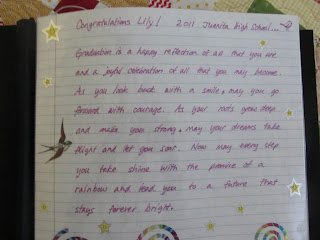 Congratulations Lily! 2011 Juanita High School...
Graduation is a happy reflection of all that you are
and a joyful celebration of all that you may become.
As you look back with a smile, may you go
forward with courage. As your roots grow deep
and make you strong, may your dreams take
flight and let you soar. Now may every step
you take shine with the promise of a
rainbow and lead you to a future that
stays forever bright.